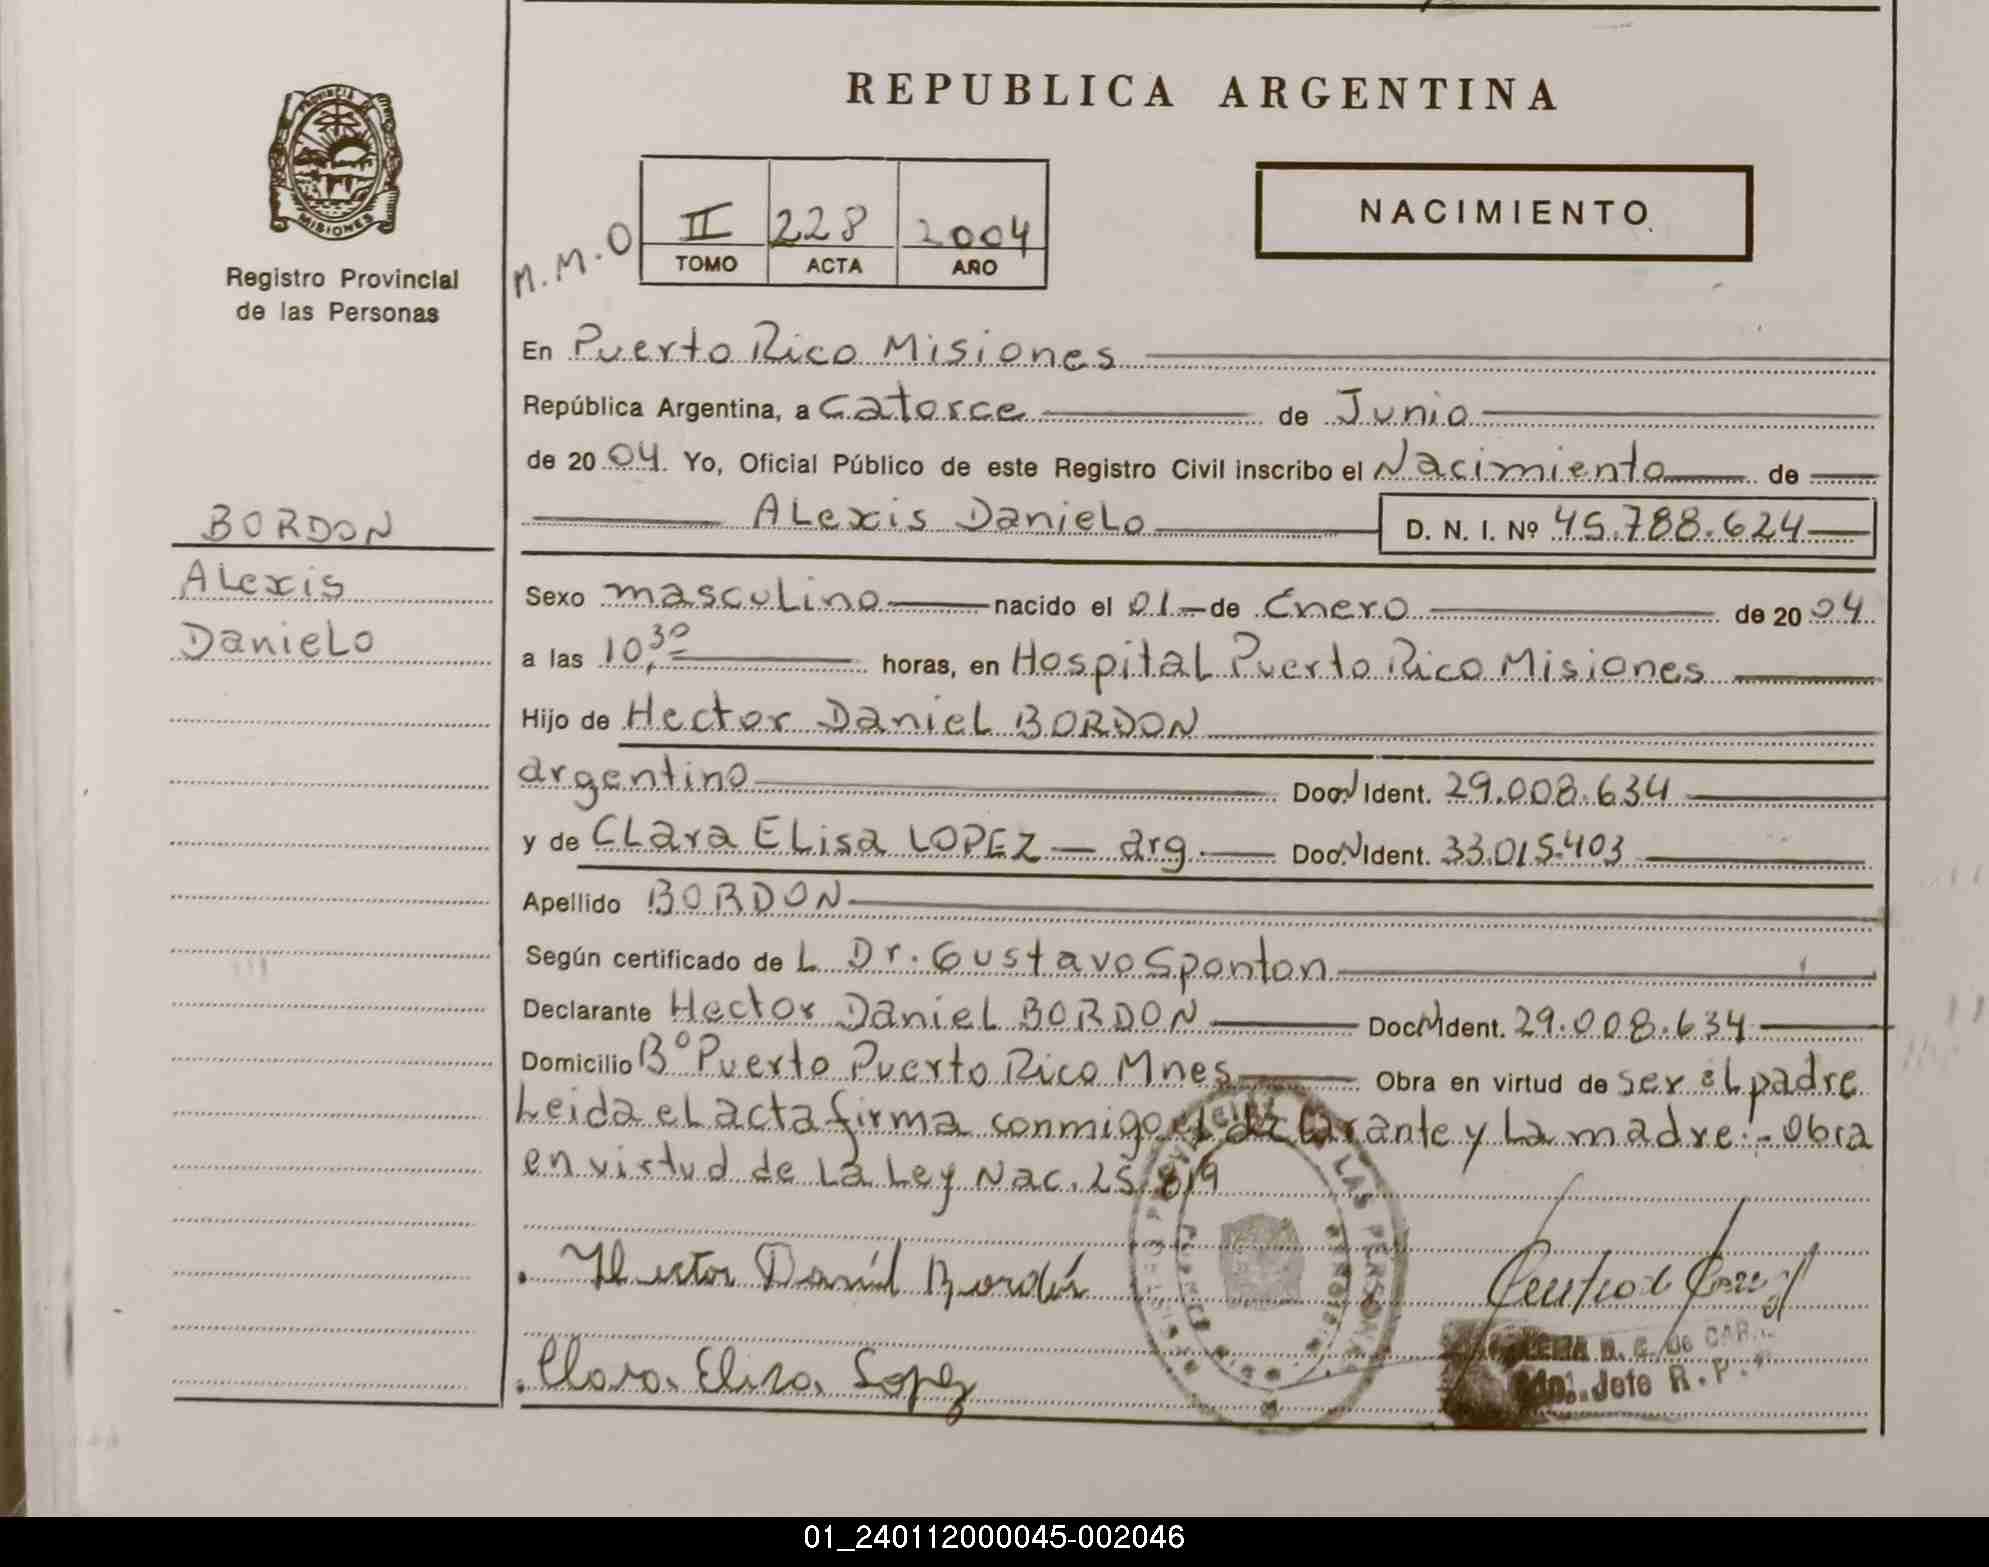 REPUBLICA ARGENTINA
PROVINCIA DE MISIONES
Registro Provincial
de las Personas
NACIMIENTO
M.M.O
II 228 2004
TOMO ACTA AÑO
En Puerto Rico Misiones
República Argentina, a Catorce de Junio
de 2004. Yo, Oficial Público de este Registro Civil inscribo el Nacimiento de
Alexis Danielo D. N. I. Nº 45.788.624
BORDON
Alexis
Danielo
Sexo masculino nacido el 01 de Enero de 2004
a las 10,30 horas, en Hospital Puerto Rico Misiones
Hijo de Hector Daniel BORDON
argentino Doc. N Ident. 29.008.634
y de Clara Elisa LOPEZ - arg. Doc. N Ident. 33.015.403
Apellido BORDON
Según certificado de L Dr. Gustavo Sponton
Declarante Hector Daniel BORDON Doc. N Ident. 29.008.634
Domicilio Bº Puerto Puerto Rico Mnes Obra en virtud de ser el padre
Leida el acta firma conmigo el declarante y La madre.- Obra
en virtud de La Ley Nac. 25.819
Hector Daniel Bordón
Clara Elisa Lopez
LAS PERSONAS
de CAR
Jefe R.P.
01_240112000045-002046